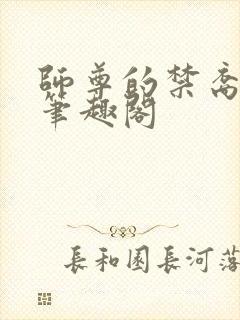 師尊的禁脔
筆趣閣
長和園長河落